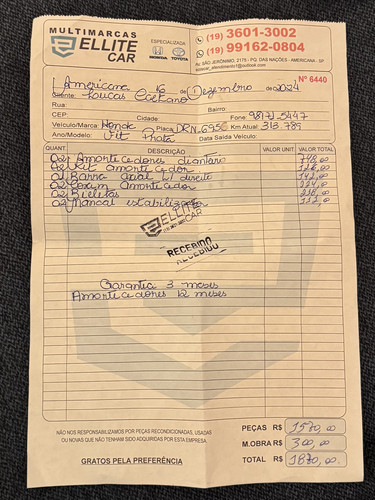 MULTIMARCAS
ELLITE
CAR
ESPECIALIZADA
HONDA TOYOTA
(19) 3601-3002
(19) 99162-0804
AV. SÃO JERÔNIMO, 2175 - PQ. DAS NAÇÕES - AMERICANA - SP
Nº 6440
Americana 16 de Dezembro de 2024
Cliente: Lucas Caetano
Rua: Bairro
CEP: Cidade: Fone:
Veículo/Marca: Honda Placa: Km Atual: 313.789
Ano/Modelo: Fit Prata Data Saída Veículo:
QUANT. DESCRIÇÃO VALOR UNIT. VALOR TOTAL
02 Amortecedores dianteiro 748,00
02 Kit amortecedor
01 Barra axial direito 142,00
02 Coxim Amortecedor 224,00
02 Bieletas
02 Mancal estabilizador 112,00
ELLITE
CAR
RECEBIDO
RECEBIDO
Garantia 3 meses
Amortecedores 12 meses
NÃO NOS RESPONSABILIZAMOS POR PEÇAS RECONDICIONADAS, USADAS
OU NOVAS QUE NÃO TENHAM SIDO ADQUIRIDAS POR ESTA EMPRESA.
GRATOS PELA PREFERÊNCIA
PEÇAS R$ 1570,00
M.OBRA R$ 300,00
TOTAL R$ 1870,00